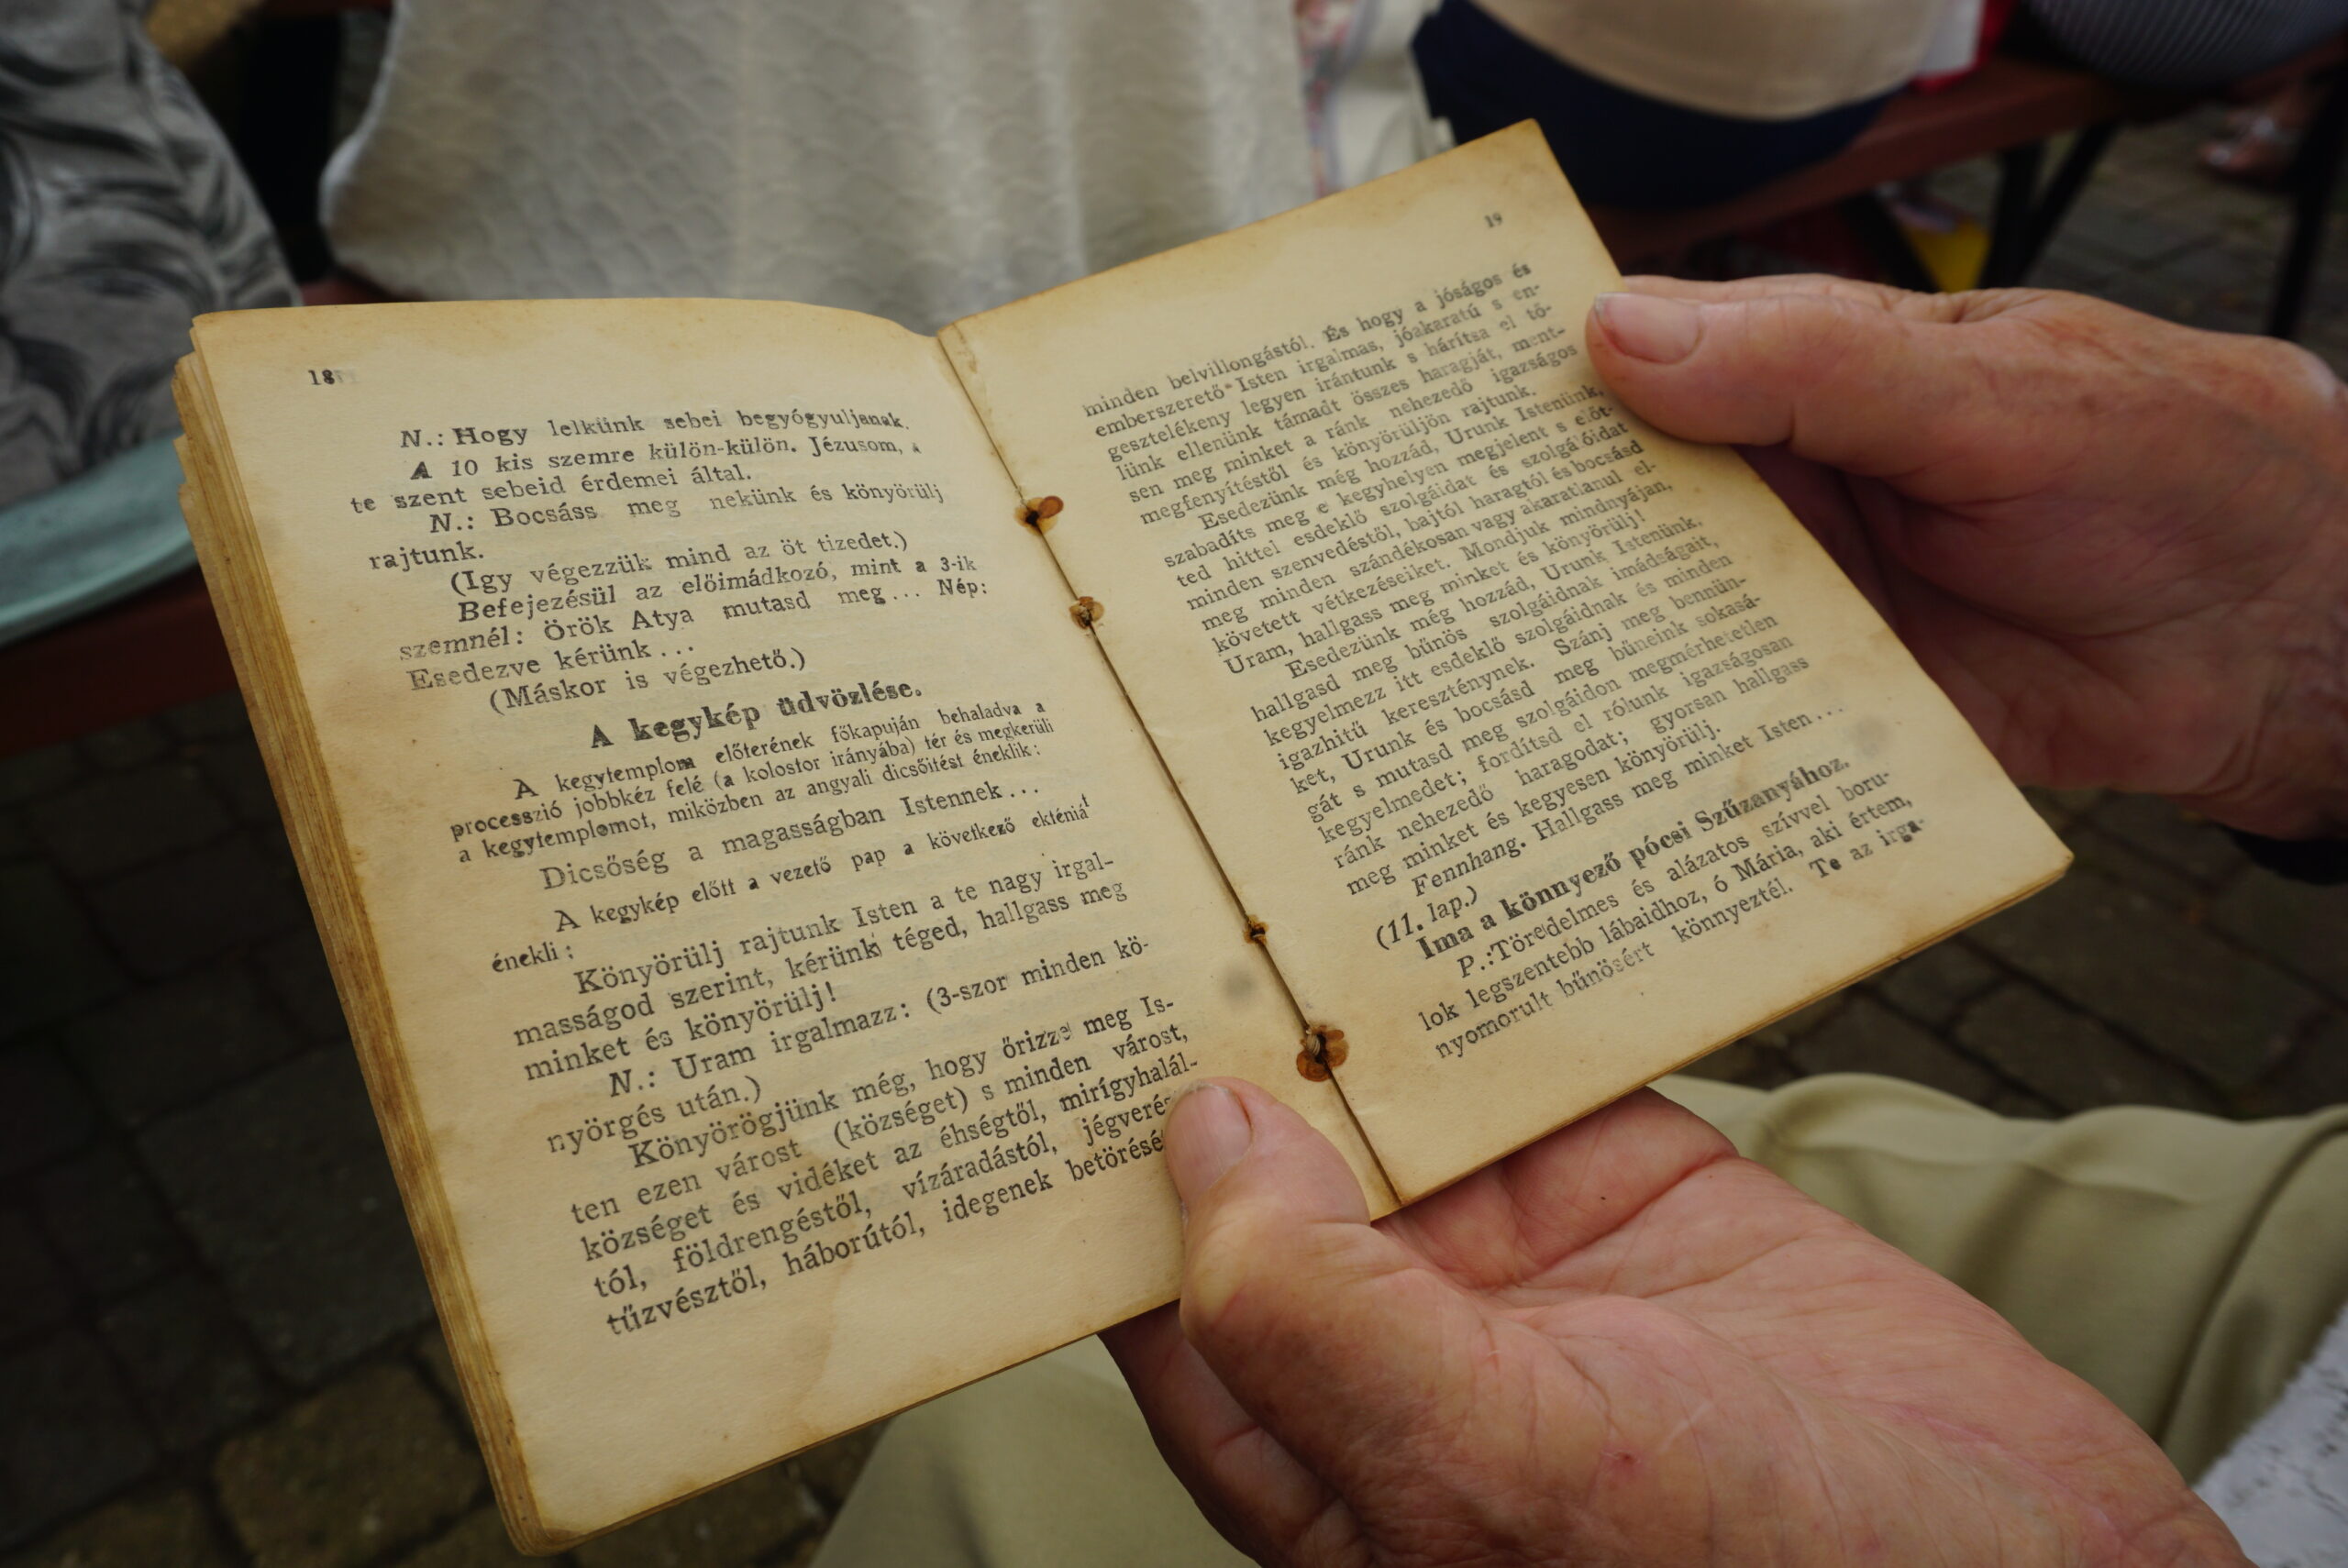 18
N.: Hogy lelkünk sebei begyógyuljanak.
A 10 kis szemre külön-külön. Jézusom, a
te szent sebeid érdemei által.
N.: Bocsáss meg nekünk és könyörülj
rajtunk.
(Igy végezzük mind az öt tizedet.)
Befejezésül az előimádkozó, mint a 3-ik
szemnél: Örök Atya mutasd meg... Nép:
Esedezve kérünk...
(Máskor is végezhető.)
A kegykép üdvözlése.
A kegytemplom előterének főkapuján behaladva a
processzió jobbkéz felé (a kolostor irányába) tér és megkerüli
a kegytemplomot, miközben az angyali dicsőitést éneklik:
Dicsőség a magasságban Istennek...
A kegykép előtt a vezető pap a következő ekténiát
énekli:
Könyörülj rajtunk Isten a te nagy irgal-
masságod szerint, kérünk téged, hallgass meg
minket és könyörülj!
N.: Uram irgalmazz: (3-szor minden kö-
nyörgés után.)
Könyörögjünk még, hogy őrizze meg Is-
ten ezen várost (községet) s minden várost,
községet és vidéket az éhségtől, mirígyhalál-
tól, földrengéstől, vízáradástól, jégverés
tűzvésztől, háborútól, idegenek betörésé
19
minden belvillongástól. És hogy a jóságos és
emberszerető Isten irgalmas, jóakaratú s en-
gesztelékeny legyen irántunk s hárítsa el tő-
lünk ellenünk támadt összes haragját, ment-
sen meg minket a ránk nehezedő igazságos
megfenyítéstől és könyörüljön rajtunk.
Esedezünk még hozzád, Urunk Istenünk,
szabadíts meg e kegyhelyen megjelent s előt-
ted hittel esdeklő szolgáidat és szolgálóidat
minden szenvedéstől, bajtól haragtól és bocsásd
meg minden szándékosan vagy akaratlanul el-
követett vétkezéseiket. Mondjuk mindnyájan,
Uram, hallgass meg minket és könyörülj!
Esedezünk még hozzád, Urunk Istenünk,
hallgasd meg bűnös szolgáidnak imádságait,
kegyelmezz itt esdeklő szolgáidnak és minden
igazhitű kereszténynek. Szánj meg bennün-
ket, Urunk és bocsásd meg bűneink sokasá-
gát s mutasd meg szolgáidon megmérhetetlen
kegyelmedet; fordítsd el rólunk igazságosan
ránk nehezedő haragodat; gyorsan hallgass
meg minket és kegyesen könyörülj.
Fennhang. Hallgass meg minket Isten...
(11. lap.)
Ima a könnyező pócsi Szűzanyához.
P.:Töredelmes és alázatos szívvel boru-
lok legszentebb lábaidhoz, ó Mária, aki értem,
nyomorult bűnösért könnyeztél. Te az irga-